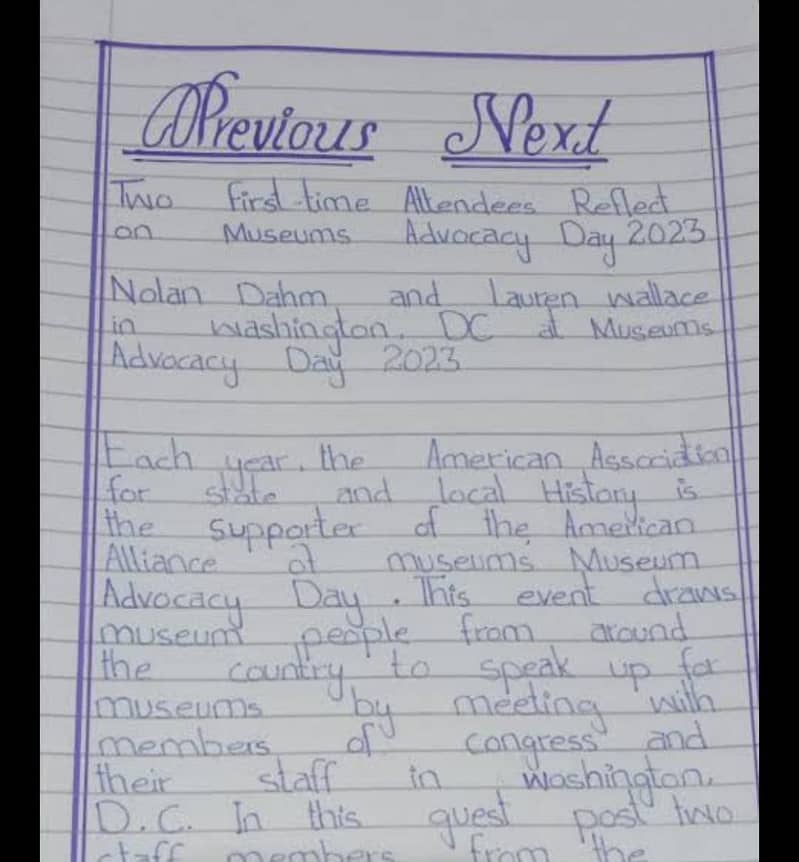 Previous Next
Two first-time Attendees Reflect
on Museums Advocacy Day 2023
Nolan Dahm and Lauren wallace
in washington, DC at Museums
Advocacy Day 2023
Each year, the American Association
for state and local History is
the supporter of the American
Alliance of museums Museum
Advocacy Day. This event draws
museum people from around
the country to speak up for
museums by meeting with
members of congress and
their staff in washington,
D.C. In this guest post two
staff members from the